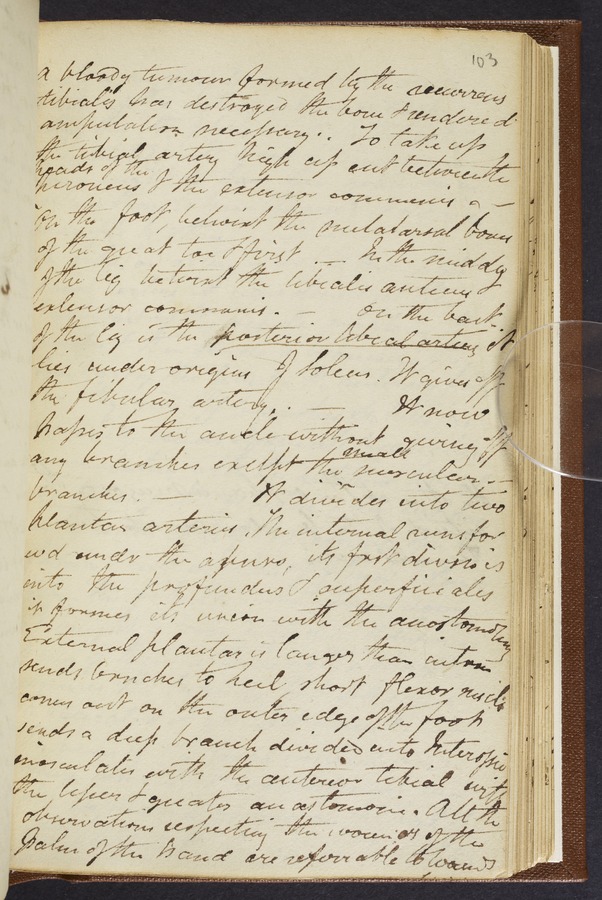 103
a bloody tumour formed by the recurrens
tibialis has destroyed the bone & rendered
amputation necessary. To take up
the tibial artery high up cut between the
heads of the
peroneus & the extensor communis
on the foot, betwixt the metatarsal bones
of the great toe & first — In the middle
of the leg betwixt the tibialis anticus &
extensor communis. — On the back
of the leg is the posterior tibial artery it
lies under origin of Soleus. It gives off
the fibular artery. — It now
passes to the ancle without giving off
any branches except the small muscular
branches. — It divides into two
plantar arteries. The internal runs for
wd under the its first division is
into the profundus & superficiales
it formes its union with the anastomosing
External plantar is larger than intern
sends branches to heel short flexor
comes out on the outer edge of the foot
sends a deep branch divided into
inosculates with the anterior tibial
the lesser & greater anastomosis. All the
observations respecting the wounds of the
Palm of the hand are referrable to wounds